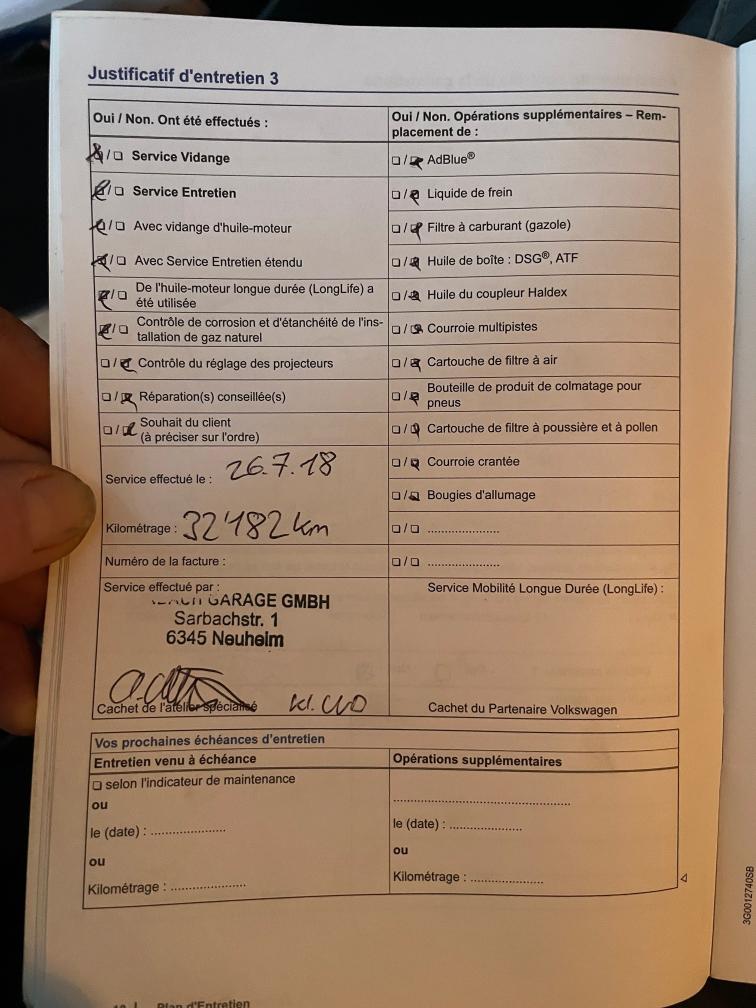 Justificatif d'entretien 3
Oui / Non. Ont été effectués :
☐ / ☐ Service Vidange
☐ / ☐ Service Entretien
☐ / ☐ Avec vidange d'huile-moteur
☐ / ☐ Avec Service Entretien étendu
☐ / ☐ De l'huile-moteur longue durée (LongLife) a
été utilisée
☐ / ☐ Contrôle de corrosion et d'étanchéité de l'ins-
tallation de gaz naturel
☐ / ☐ Contrôle du réglage des projecteurs
☐ / ☐ Réparation(s) conseillée(s)
☐ / ☐ Souhait du client
(à préciser sur l'ordre)
Service effectué le : 26.7.18
Kilométrage : 32'182 km
Numéro de la facture :
Service effectué par :
GARAGE GMBH
Sarbachstr. 1
6345 Neuheim
Cachet de l'atelier spécialisé
Oui / Non. Opérations supplémentaires – Rem-
placement de :
☐ / ☐ AdBlue®
☐ / ☐ Liquide de frein
☐ / ☐ Filtre à carburant (gazole)
☐ / ☐ Huile de boîte : DSG®, ATF
☐ / ☐ Huile du coupleur Haldex
☐ / ☐ Courroie multipistes
☐ / ☐ Cartouche de filtre à air
☐ / ☐ Bouteille de produit de colmatage pour
pneus
☐ / ☐ Cartouche de filtre à poussière et à pollen
☐ / ☐ Courroie crantée
☐ / ☐ Bougies d'allumage
☐ / ☐ ......................
☐ / ☐ ......................
Service Mobilité Longue Durée (LongLife) :
Cachet du Partenaire Volkswagen
Vos prochaines échéances d'entretien
Entretien venu à échéance
☐ selon l'indicateur de maintenance
ou
le (date) : ......................
ou
Kilométrage : ......................
Opérations supplémentaires
......................................................
le (date) : ......................
ou
Kilométrage : ......................
3G0012740SB
Plan d'Entretien